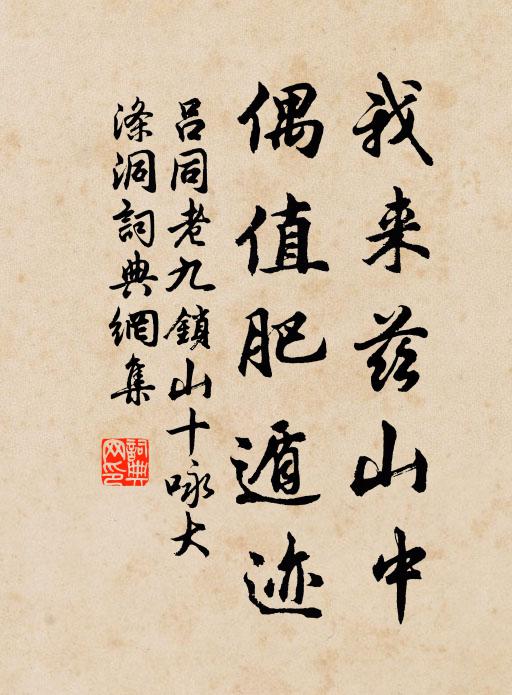 我来兹山中
偶值肥遁迹
吕同老九鎖山十咏大
涤洞詞典網集
詞典网印